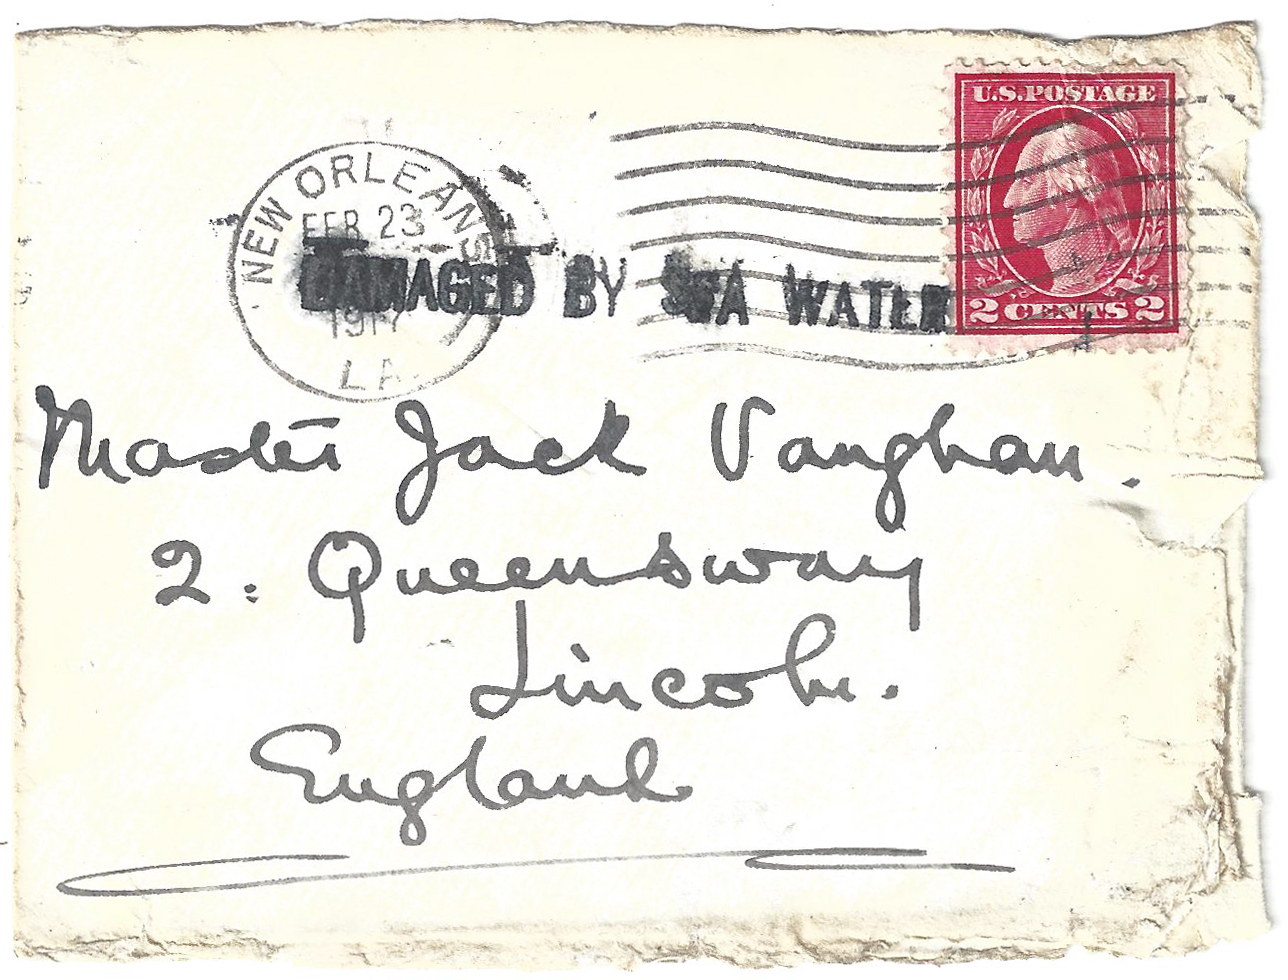 U.S.POSTAGE
2 CENTS 2
NEW ORLEANS
FEB 23
1917
LA
DAMAGED BY SEA WATER
Master Jack Vaughan.
2. Queensway
Lincoln.
England